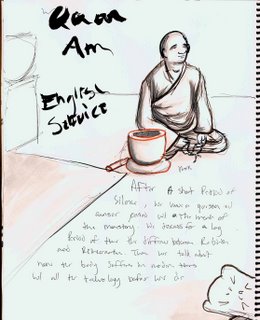 Am
English
Service
AFTER A short Period of
Silence, we have a question and
answer period w/ the monk of
the monastery. We discuss for a long
Period of time the difference between Rebirth
and Reincarnation. Then we talk about
how the body suffers in modern times
w/ all the technology before we sit